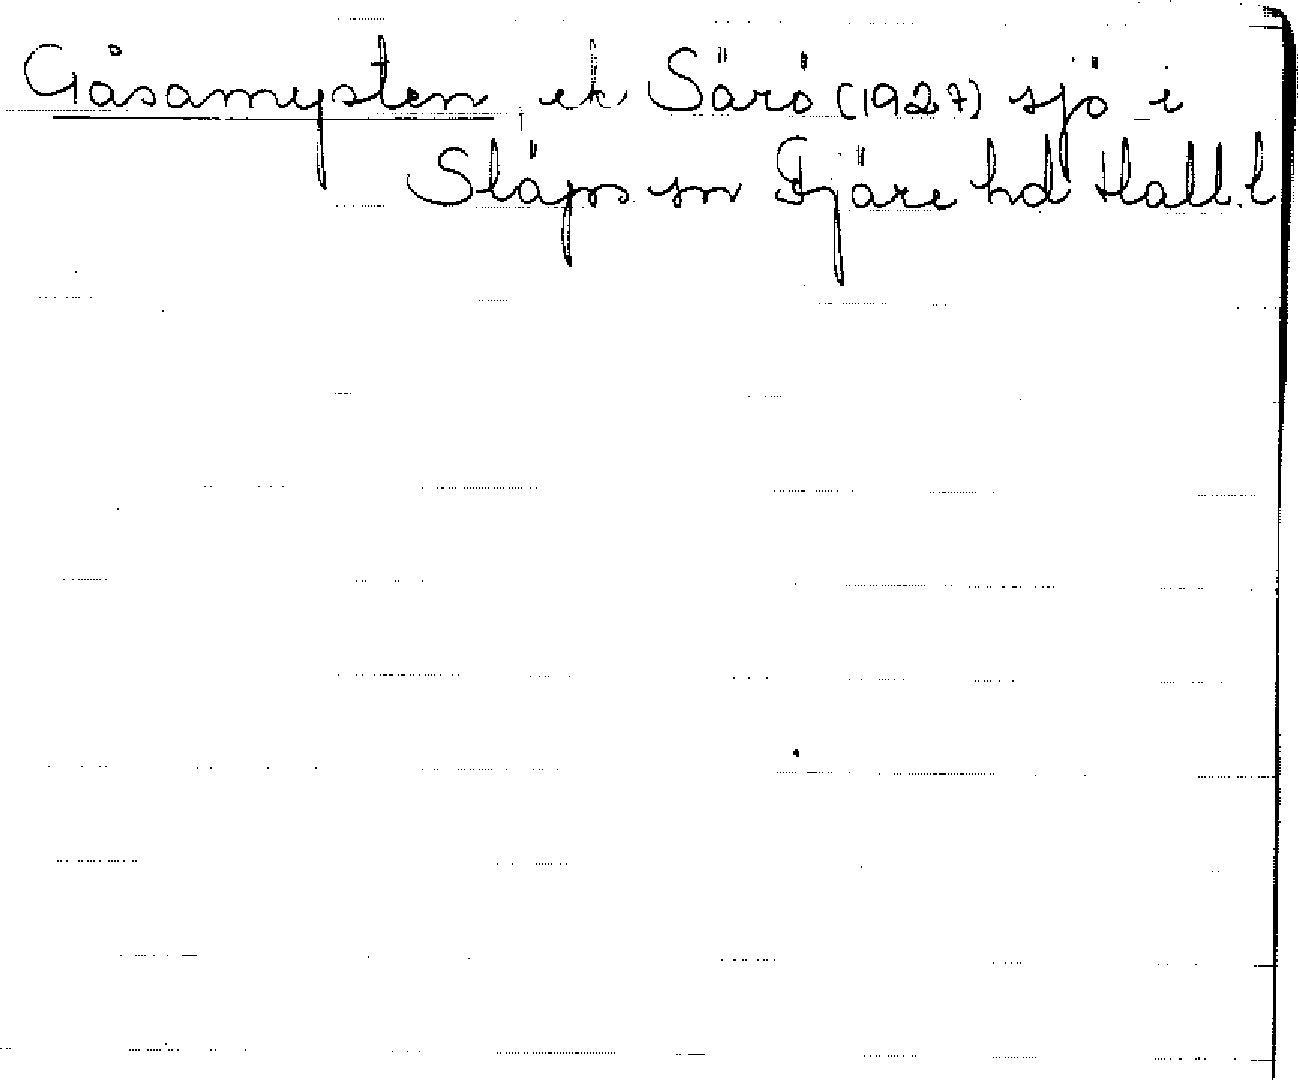 Gåsamysten ek Särö (1927) sjö i
Släps sn Fjäre hd Hall. l